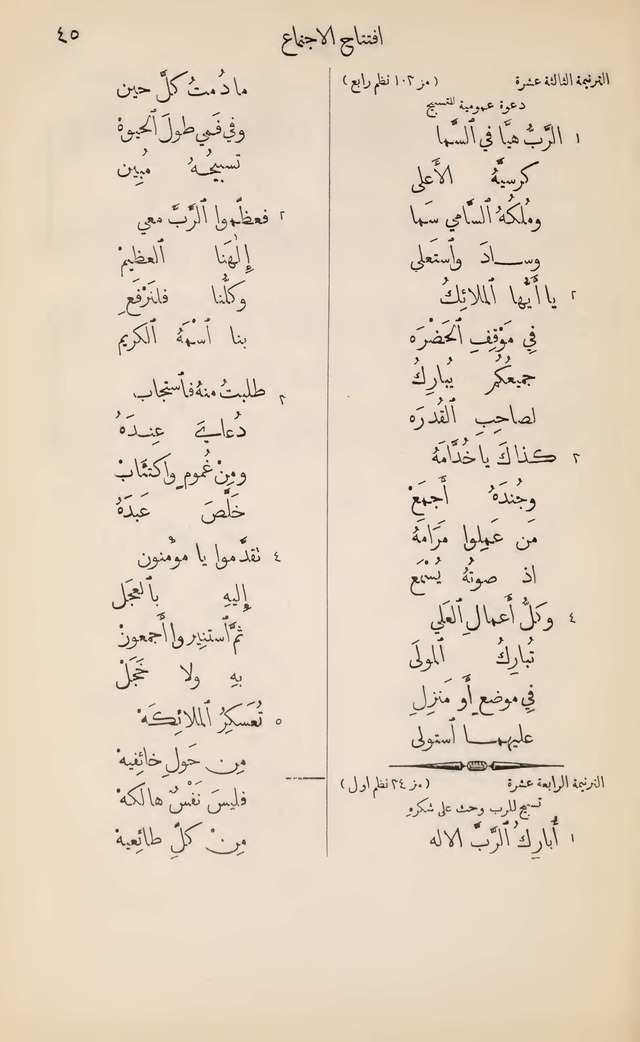 افتتاح الاجتماع
٤٥
الترنيمة الثالثة عشرة (مز ١٠٢ نظم رابع)
دعوة عمومية للتسبيح
١ الرَّبُّ هيَّا في ٱلسَّما
كرسيَّهُ الأَعلى
وملكُهُ ٱلسَّامي سَما
وسادَ وٱستَعلى
٢ يا أَيُّها ٱلملائِكُ
في مَوْقِفِ ٱلحَضْرَه
جميعُكُم يُبارِكُ
لصاحِبِ ٱلقُدرَه
٣ كذاكَ يا خُدَّامَهُ
وجُندَهُ أَجمَعْ
مَن عَمِلوا مَرَامَهُ
اذ صوتُهُ يُسْمَع
٤ وكلُّ أَعمالِ ٱلعَلي
تُبارِكُ ٱلمولَى
في موضعٍ أَو مَنزِلِ
عليهما ٱستولى
الترنيمة الرابعة عشرة (مز ٣٤ نظم اول)
تسبيح للرب وحث على شكرهِ
١ أُبارِكُ ٱلرَّبَّ الاله
ما دُمتُ كلَّ حين
وفي فَمي طولَ ٱلحيوهْ
تسبيحُهُ مُبِين
٢ فعظِّموا ٱلرَّبَّ معي
إِلٰهَنا ٱلعظيمْ
وكلُّنا فلنَرْفَعِ
بنا ٱسْمَهُ ٱلكريم
٣ طلبتُ منهُ فٱستجاب
دُعاءيَ عِندَهُ
ومِنْ غُمومٍ واكتئَابْ
خلَّصَ عَبدَهُ
٤ تقدَّموا يا مؤمنون
إِليهِ بٱلعجَل
ثمَّ ٱستنيروا أَجمعونْ
بهِ ولا خَجَلْ
٥ تُعَسكِرُ ٱلملائِكَهْ
مِن حَولِ خائِفيهْ
فليسَ نَفْسٌ هالكهْ
مِنْ كلِّ طائِعيهْ